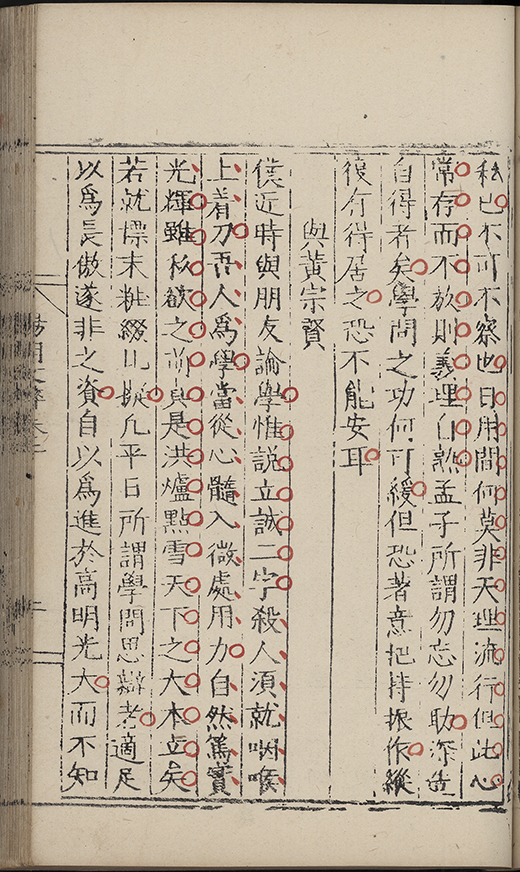 私也不可不察也日用間何莫非天理流行但此心
常存而不放則義理自熟孟子所謂勿忘勿助深造
自得者矣學問之功何可緩但恐著意把持振作縱
復有得居之恐不能安耳
與黃宗賢
僕近時與朋友論學惟説立誠二字殺人須就咽喉
上着刀吾人為學當從心髓入微處用力自然篤實
光輝雖私欲之萌真是洪爐點雪天下之大本立矣
若就標末粧綴比擬凡平日所謂學問思辯者適足
以為長傲遂非之資自以為進於高明光大而不知
陽明文